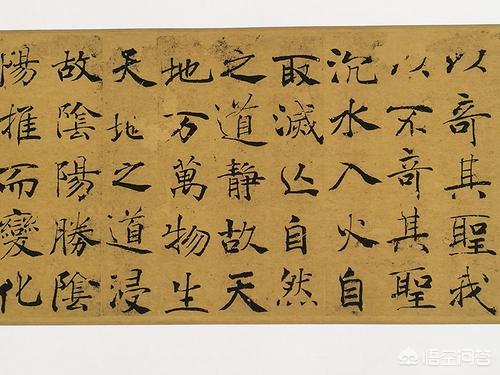 以奇其聖我
以不奇其聖
沉水入火自
取滅亾自然
之道靜故天
地万萬物生
天地之道浸
故陰陽勝陰
陽推而變化
悟空问答